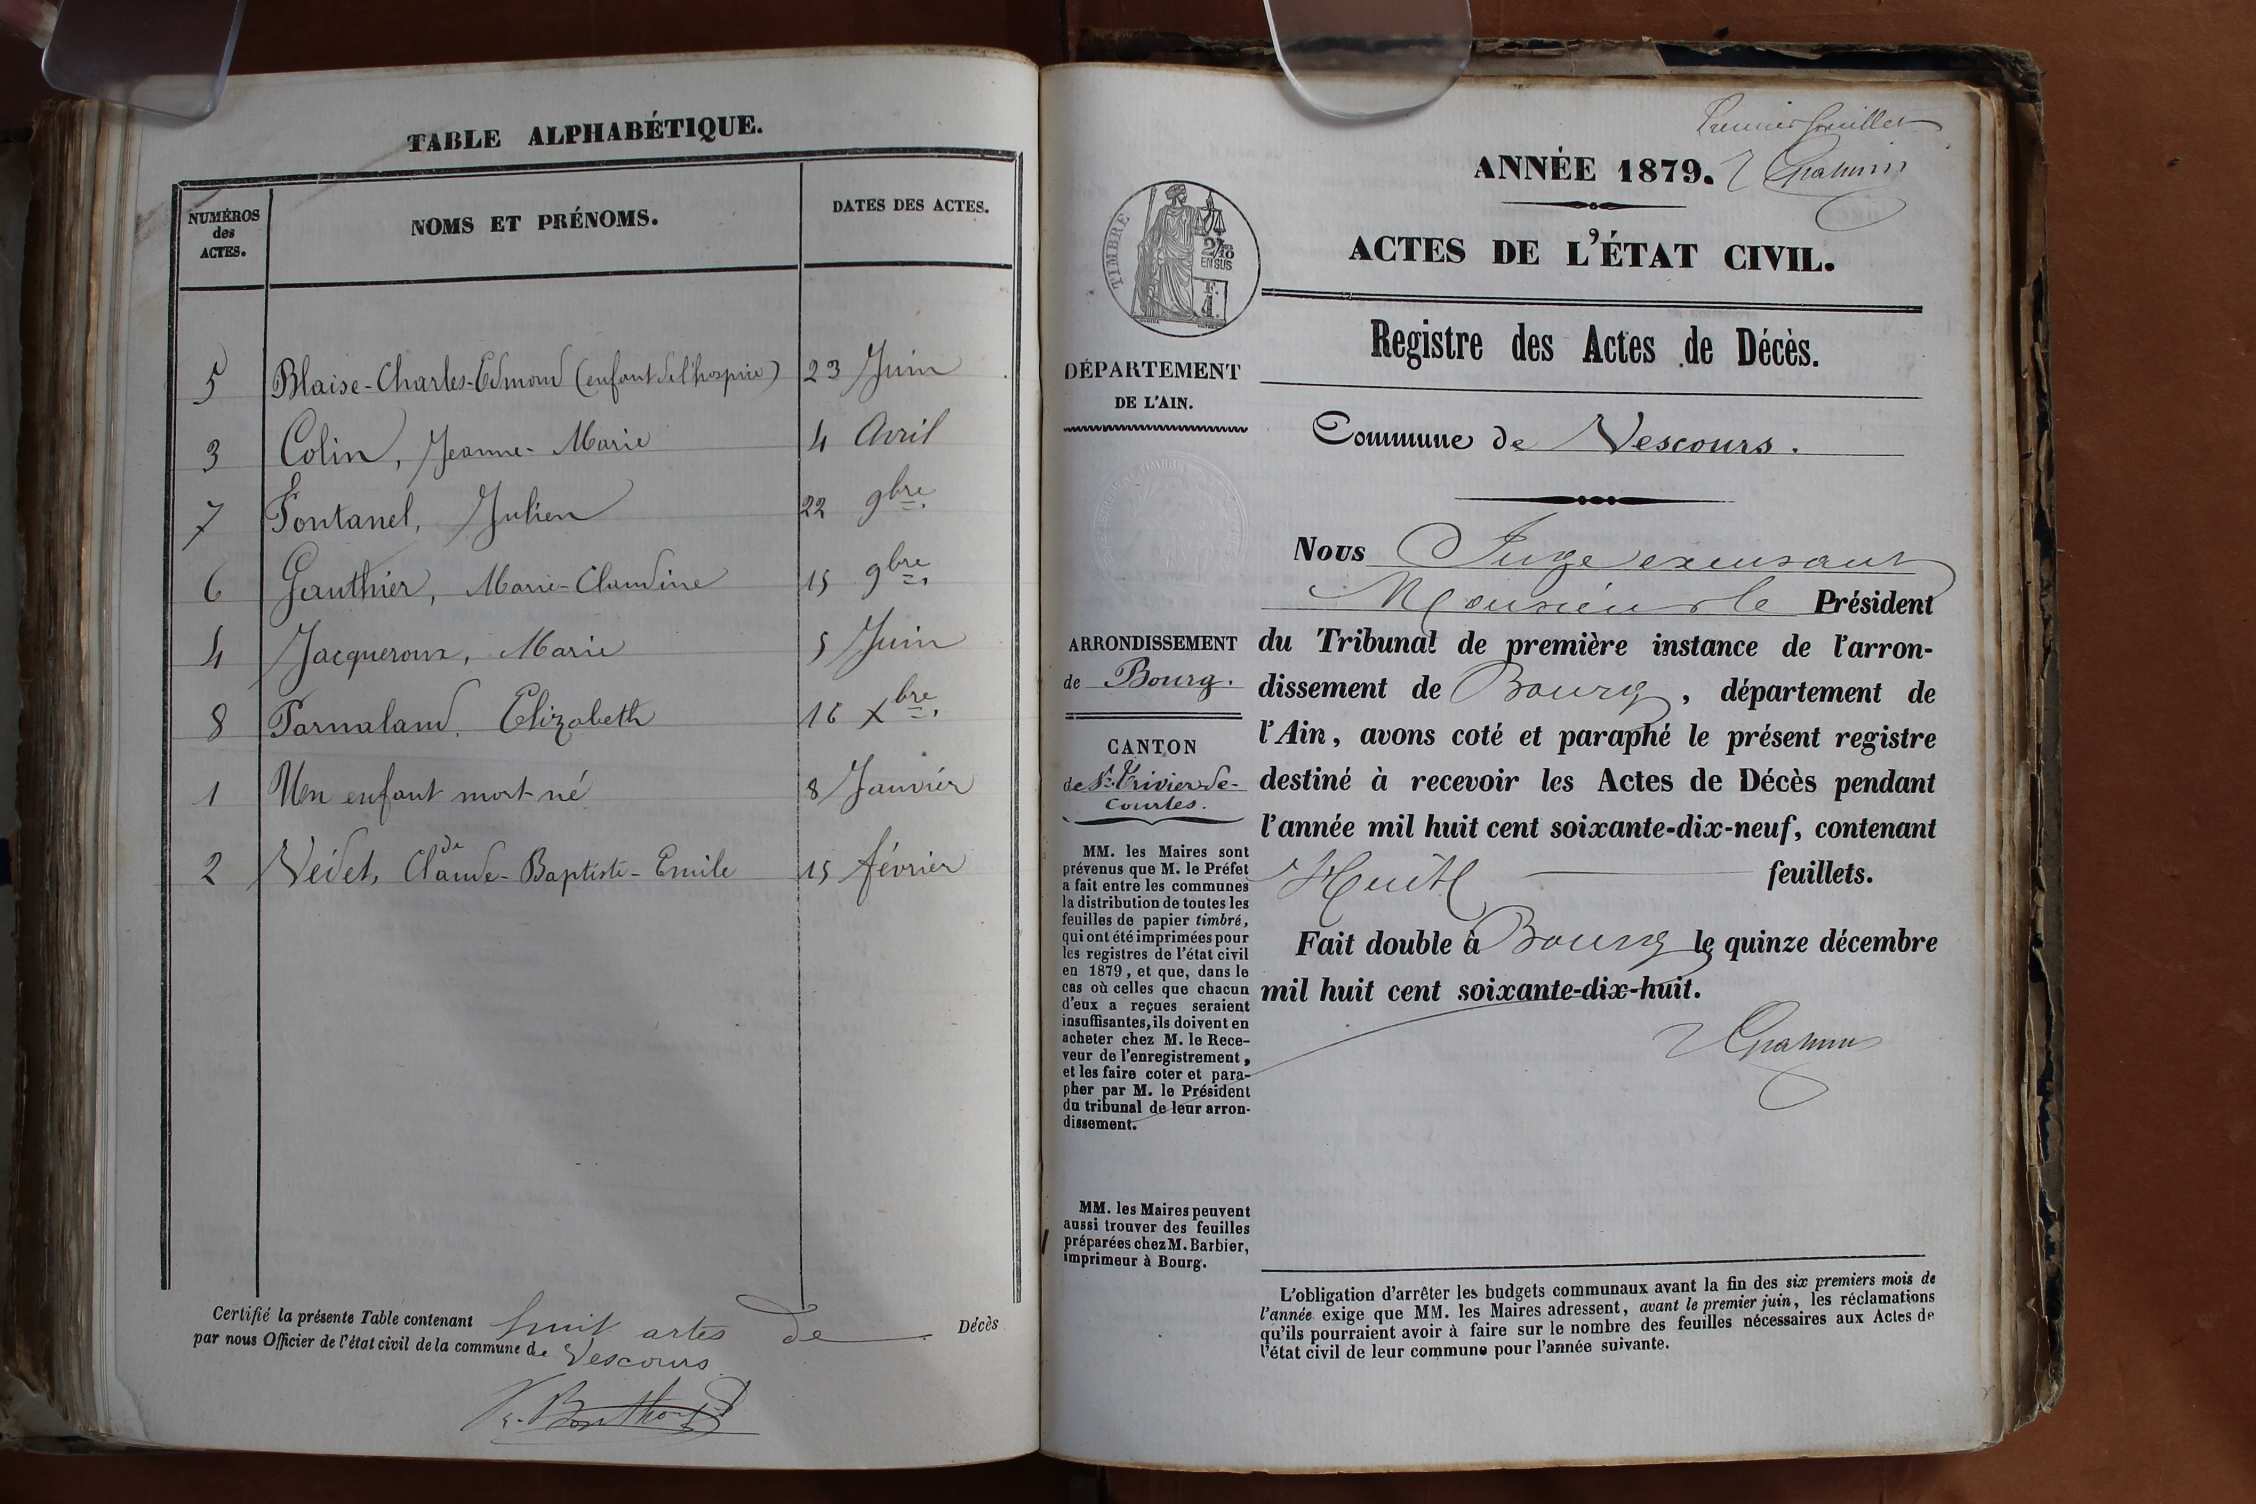 TABLE ALPHABÉTIQUE.
NUMÉROS des ACTES.
NOMS ET PRÉNOMS.
DATES DES ACTES.
5 Blaise-Charles-Edmond (enfant de l'hospice) 23 Juin
3 Colin, Jeanne-Marie 4 Avril
7 Fontanel, Julien 22 9bre.
6 Gauthier, Marie-Claudine 15 9bre.
4 Jacqueroux, Marie 5 Juin
8 Parnaland, Elizabeth 16 Xbre.
1 Un enfant mort-né 8 Janvier
2 Védet, Claude-Baptiste-Emile 15 février
Certifié la présente Table contenant huit actes de Décès
par nous Officier de l'état civil de la commune de Vescours
Premier feuillet
ANNÉE 1879.
ACTES DE L'ÉTAT CIVIL.
TIMBRE
2/10
EN SUS
F.
1.
Registre des Actes de Décès.
DÉPARTEMENT
DE L'AIN.
Commune de Vescours.
ARRONDISSEMENT
de Bourg.
CANTON
de St. Trivier-de-
Courtes.
MM. les Maires sont
prévenus que M. le Préfet
a fait entre les communes
la distribution de toutes les
feuilles de papier timbré,
qui ont été imprimées pour
les registres de l'état civil
en 1879, et que, dans le
cas où celles que chacun
d'eux a reçues seraient
insuffisantes, ils doivent en
acheter chez M. le Rece-
veur de l'enregistrement,
et les faire coter et para-
pher par M. le Président
du tribunal de leur arron-
dissement.
MM. les Maires peuvent
aussi trouver des feuilles
préparées chez M. Barbier,
imprimeur à Bourg.
Nous Juge excusant
Monsieur le Président
du Tribunal de première instance de l'arron-
dissement de Bourg, département de
l'Ain, avons coté et paraphé le présent registre
destiné à recevoir les Actes de Décès pendant
l'année mil huit cent soixante-dix-neuf, contenant
Huit feuillets.
Fait double à Bourg le quinze décembre
mil huit cent soixante-dix-huit.
L'obligation d'arrêter les budgets communaux avant la fin des six premiers mois de
l'année exige que MM. les Maires adressent, avant le premier juin, les réclamations
qu'ils pourraient avoir à faire sur le nombre des feuilles nécessaires aux Actes de
l'état civil de leur commune pour l'année suivante.